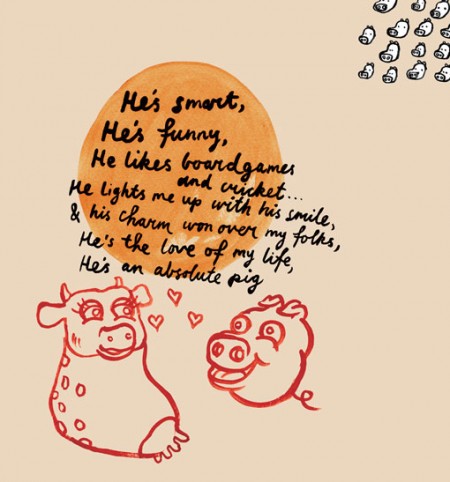 He's smart,
He's funny,
He likes boardgames
and cricket...
He lights me up with his smile,
& his charm won over my folks,
He's the love of my life,
He's an absolute pig